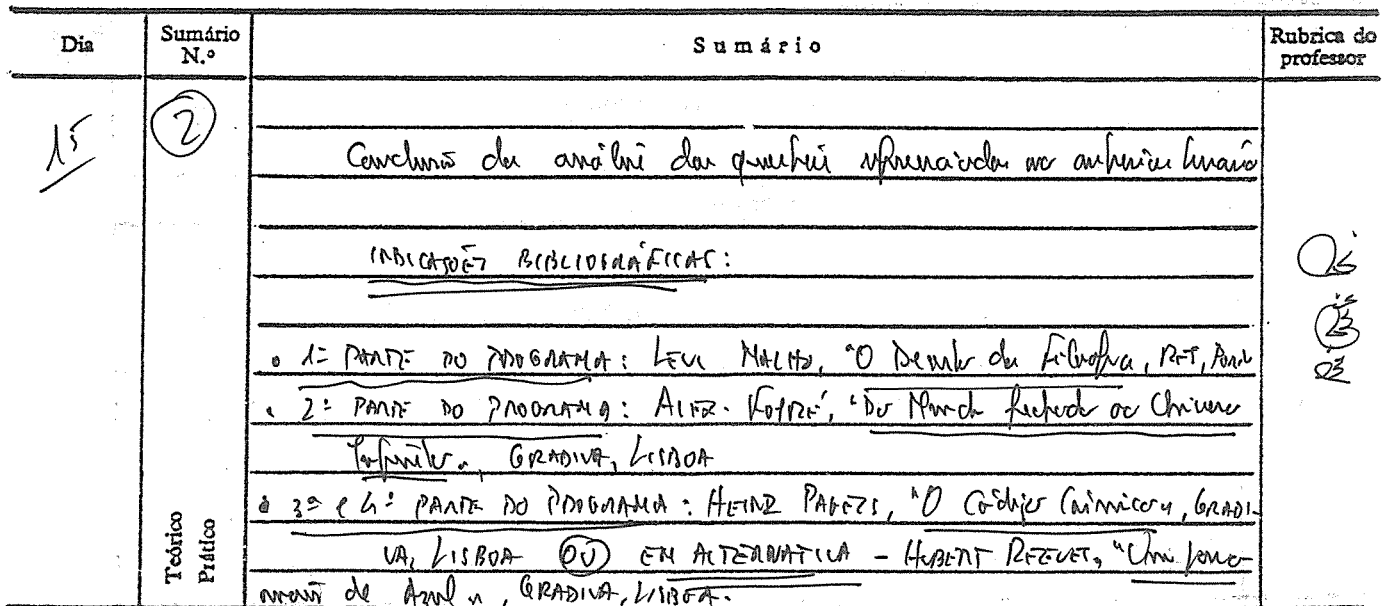 Dia Sumário N.º Sumário Rubrica do professor
15 2
Conclusão da análise das questões referenciadas no anterior sumário
INDICAÇÕES BIBLIOGRÁFICAS:
• 1ª PARTE DO PROGRAMA: LEVI MALHO, "O Deserto da Filosofia, RÉS, Porto
• 2ª PARTE DO PROGRAMA: ALEX. KOYRÉ, "Do Mundo fechado ao Universo
Infinito", GRADIVA, LISBOA
• 3ª e 4ª PARTE DO PROGRAMA: HEINZ PAGELS, "O Código Cósmico", GRADI-
VA, LISBOA OU EM ALTERNATIVA - HUBERT REEVES, "Um pouco
mais de Azul", GRADIVA, LISBOA.
Teórico
Prático